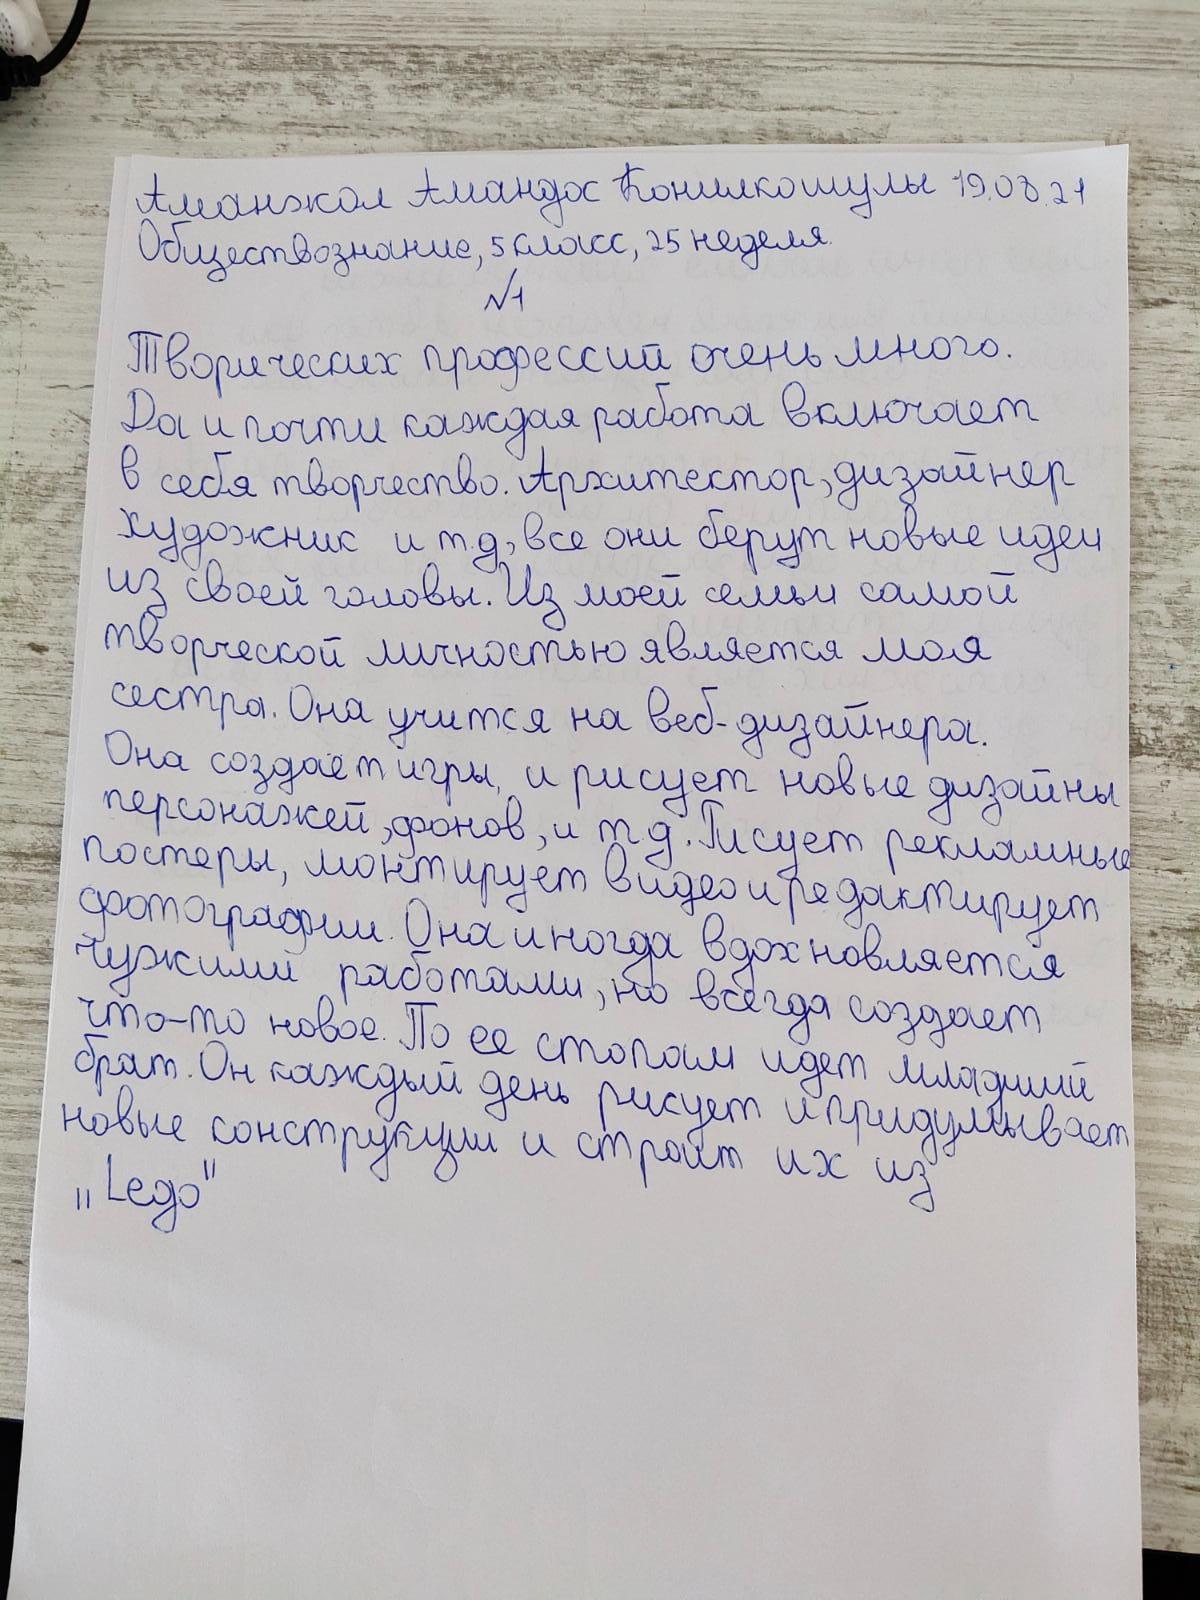 Аманжол Амандос Конилкошулы 19.08.21
Обществознание, 5 класс, 25 неделя.
№1
Творических профессий очень много.
Да и почти каждая работа включает
в себя творчество. Архитектор, дизайнер
художник и т.д, все они берут новые идеи
из своей головы. Из моей семьи самой
творческой личностью является моя
сестра. Она учится на веб-дизайнера.
Она создает игры, и рисует новые дизайны
персонажей, фонов, и т.д. Рисует рекламные
постеры, монтирует видео и редактирует
фотографии. Она иногда вдохновляется
чужими работами, но всегда создает
что-то новое. По ее стопам идет младший
брат. Он каждый день рисует и придумывает
новые конструкции и строит их из
„Lego"